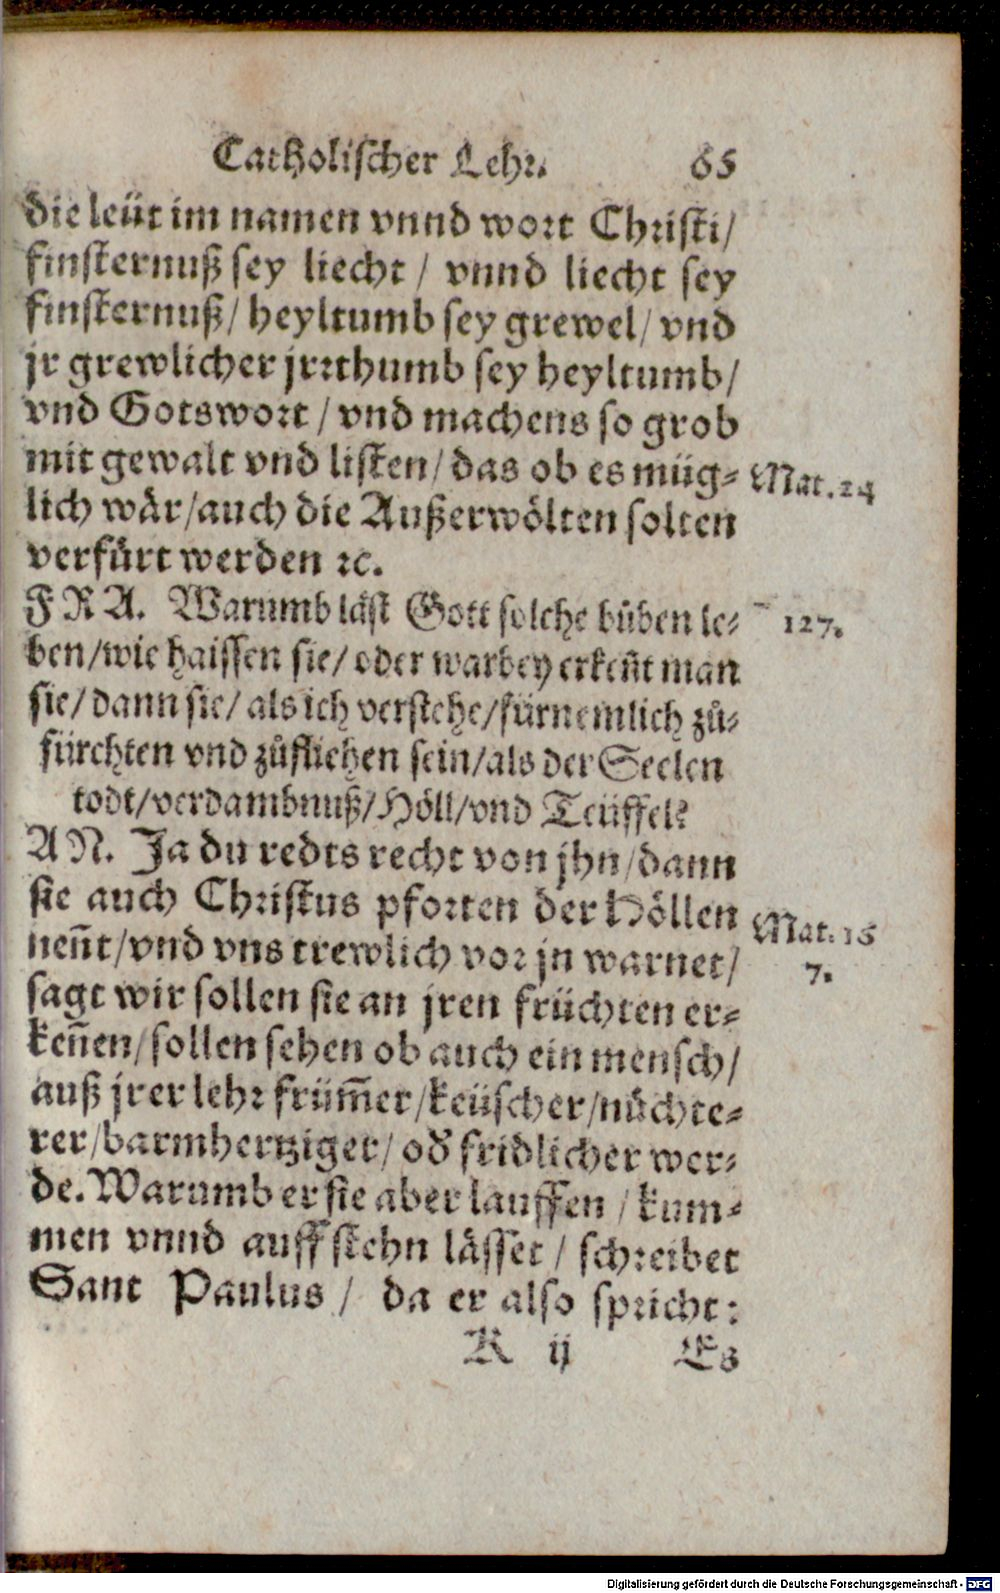 Catholischer Lehr. 65
die leüt im namen vnnd wort Christi/
finsternuß sey liecht / vnnd liecht sey
finsternuß/ heyltumb sey grewel/ vnd
jr grewlicher jrrthumb sey heyltumb/
vnd Gotswort / vnd machens so grob
mit gewalt vnd listen/ das ob es müg= Mat. 24
lich wår/auch die Außerwölten solten
verfürt werden ꝛc.
FRA. Warumb läst Gott solche büben le= 127.
ben/wie haissen sie/ oder warbey erkeñt man
sie/ dann sie/ als ich verstehe/fürnemlich zů=
fürchten vnd zůfliehen sein/als der Seelen
todt/verdambnuß/Höll/vnd Teüffel?
AN. Ja du redts recht von jhn/dann
sie auch Christus pforten der Höllen Mat. 16
neñt/vnd vns trewlich vor jn warnet/ 7.
sagt wir sollen sie an jren früchten er=
keñen/sollen sehen ob auch ein mensch/
auß jrer lehr früm̄er/keüscher/nüchte=
rer/barmhertziger/ od̕ fridlicher wer=
de. Warumb er sie aber lauffen / kum=
men vnnd auffstehn lässet / schreibet
Sant Paulus / da er also spricht:
K ij Es
Digitalisierung gefördert durch die Deutsche Forschungsgemeinschaft - DFG